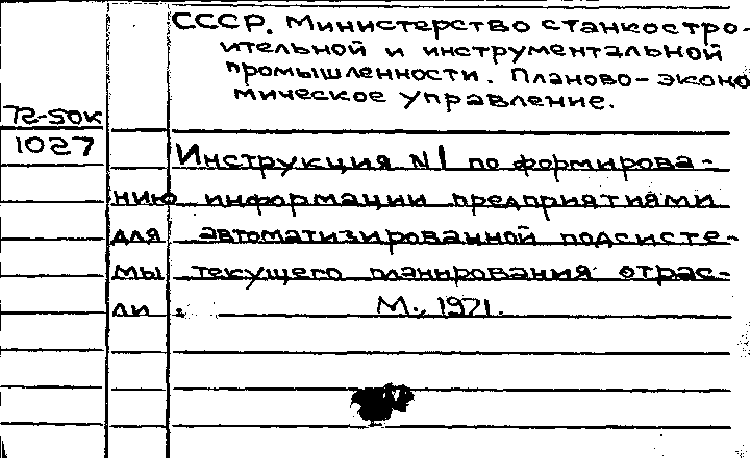 СССР. Министерство станкостро-
ительной и инструментальной
промышленности. Планово-эконо
мическое управление.
72-50к
1027
Инструкция №1 по формирова-
нию информации предприятиями
для автоматизированной подсисте-
мы текущего планирования отрас-
ли. М., 1971.